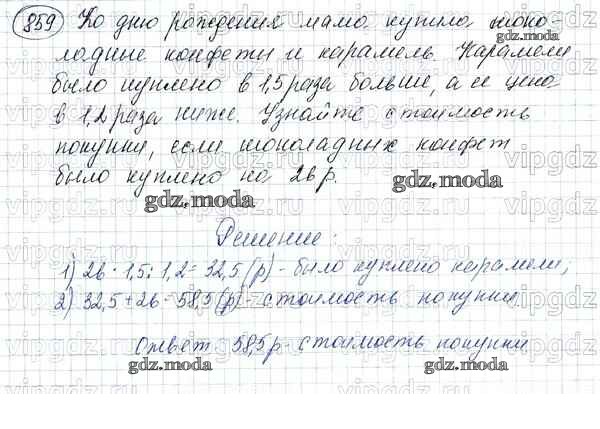 859 Ко дню рождения мама купила шоко-
ладные конфеты и карамель. Карамели
было куплено в 1,5 раза больше, а ее цена
в 1,2 раза ниже. Узнайте стоимость
покупки, если шоколадных конфет
было куплено на 26 р.
Решение:
1) 26 · 1,5 : 1,2 = 32,5 (р) - было куплено карамели;
2) 32,5 + 26 = 58,5 (р) - стоимость покупки
Ответ 58,5 р - стоимость покупки
gdz.moda
vipgdz